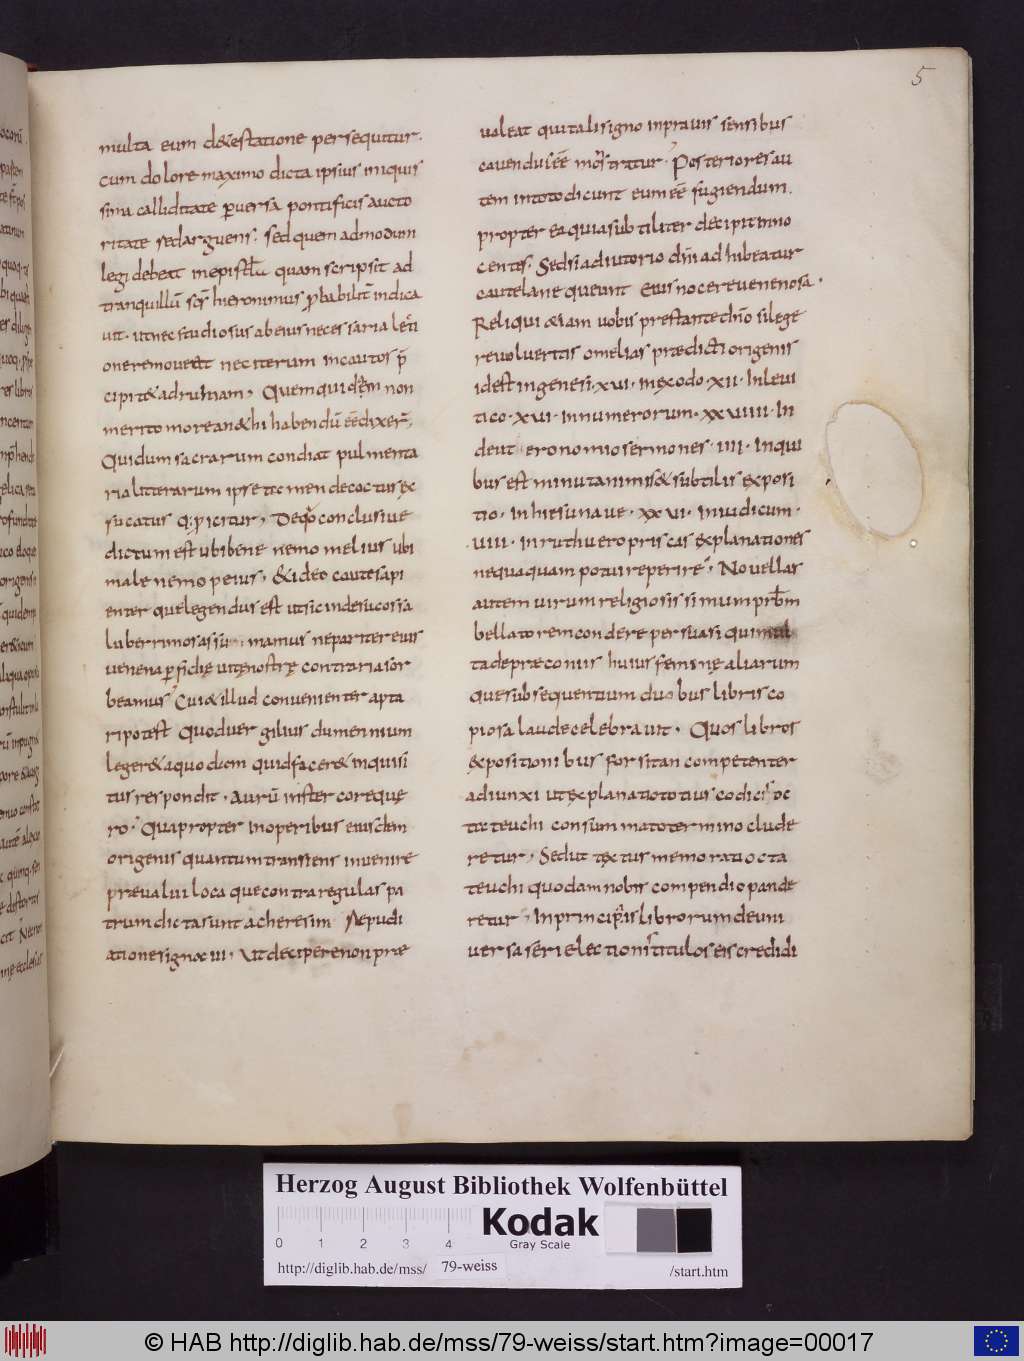 5
multa eum d&estatione persequitur.
cum dolore maximo dicta ipsius iniquis
sima calliditate puersa pontificis aucto
ritate sedarguens. sed quem admodum
legi debeat in epistł̄u quam scripsit ad
tranquillū scs̄ hieronimus pbabilit̄ indica
uit. ut nec studiosus ab eius necessaria lecti
one remoueatt nec iterum incautos p̄
cipit& ad ruinam, Quem quidem non
merito morean&hi habendū eē dixer̄,
Qui dum sacrarum condiat pulmenta
ria litterarum ipse tc men decoctus ex
sucatus q; picitur, De quo conclusiue
dictum est ubi bene nemo melius ubi
male nemo peius, &ideo caute sapi
enter que legendus est ut sic inde sucos sa
luberrimos assu mamus ne pariter eius
uenena pfidię uitę nostrę contraria sor
beamus Cui &illud conuenienter apta
ri potest Quod uergilius dum ennium
leger& a quodam quid facer& inquisi
tus respondit. aurū in stercore quę
ro. Quapropter in operibus eiusdem
origenis quantum transiens inuenire
præualui loca que contra regulas pa
trum dicta sunt acheresim Repudi
atione signaui. Ut decipere non præ
ualeat qui tali signo in prauis sensibus
cauendus eē mōstratur. Posteriores au
tem in toto dicunt eum eē fugiendum.
propter ea quia subtiliter decipit inno
centes. Sed si adiutorio dn̄i adhibeatur
cautela nequeunt eius nocere uenenosa.
Reliqui &iam uobis prestante dn̄o si lege
re uolueritis omelias prædicti origenis
id est in genesi. xvi. in exodo. xii. In leui
tico. xvi. in numerorum. xxviiii. In
deut eronomio sermones. iiii. In qui
bus est minuta nimis & subtilis exposi
tio. In hiesu naue. xxvi. in iudicum.
viiii. in ruth uero priscas explanationes
nequaquam potui reperire. Nouellas
autem uirum religiosissimum prbm̄
bellatorem condere persuasi qui mul
ta de præconiis huius feminę aliarum
que subsequentium duobus libris co
piosa laude celebrauit. Quos libros
expositionibus forsitan competenter
adiunxi ut explanatio totius codicis oc
ta teuchi consummato termino clude
retur, Sed ut textus memorati octa
teuchi quodam nobis compendio pande
retur, In principiis librorum de uni
uersa serie lectionis titulos eis credidi
Herzog August Bibliothek Wolfenbüttel
0 1 2 3 4
Kodak
Gray Scale
http://diglib.hab.de/mss/ 79-weiss /start.htm
© HAB http://diglib.hab.de/mss/79-weiss/start.htm?image=00017